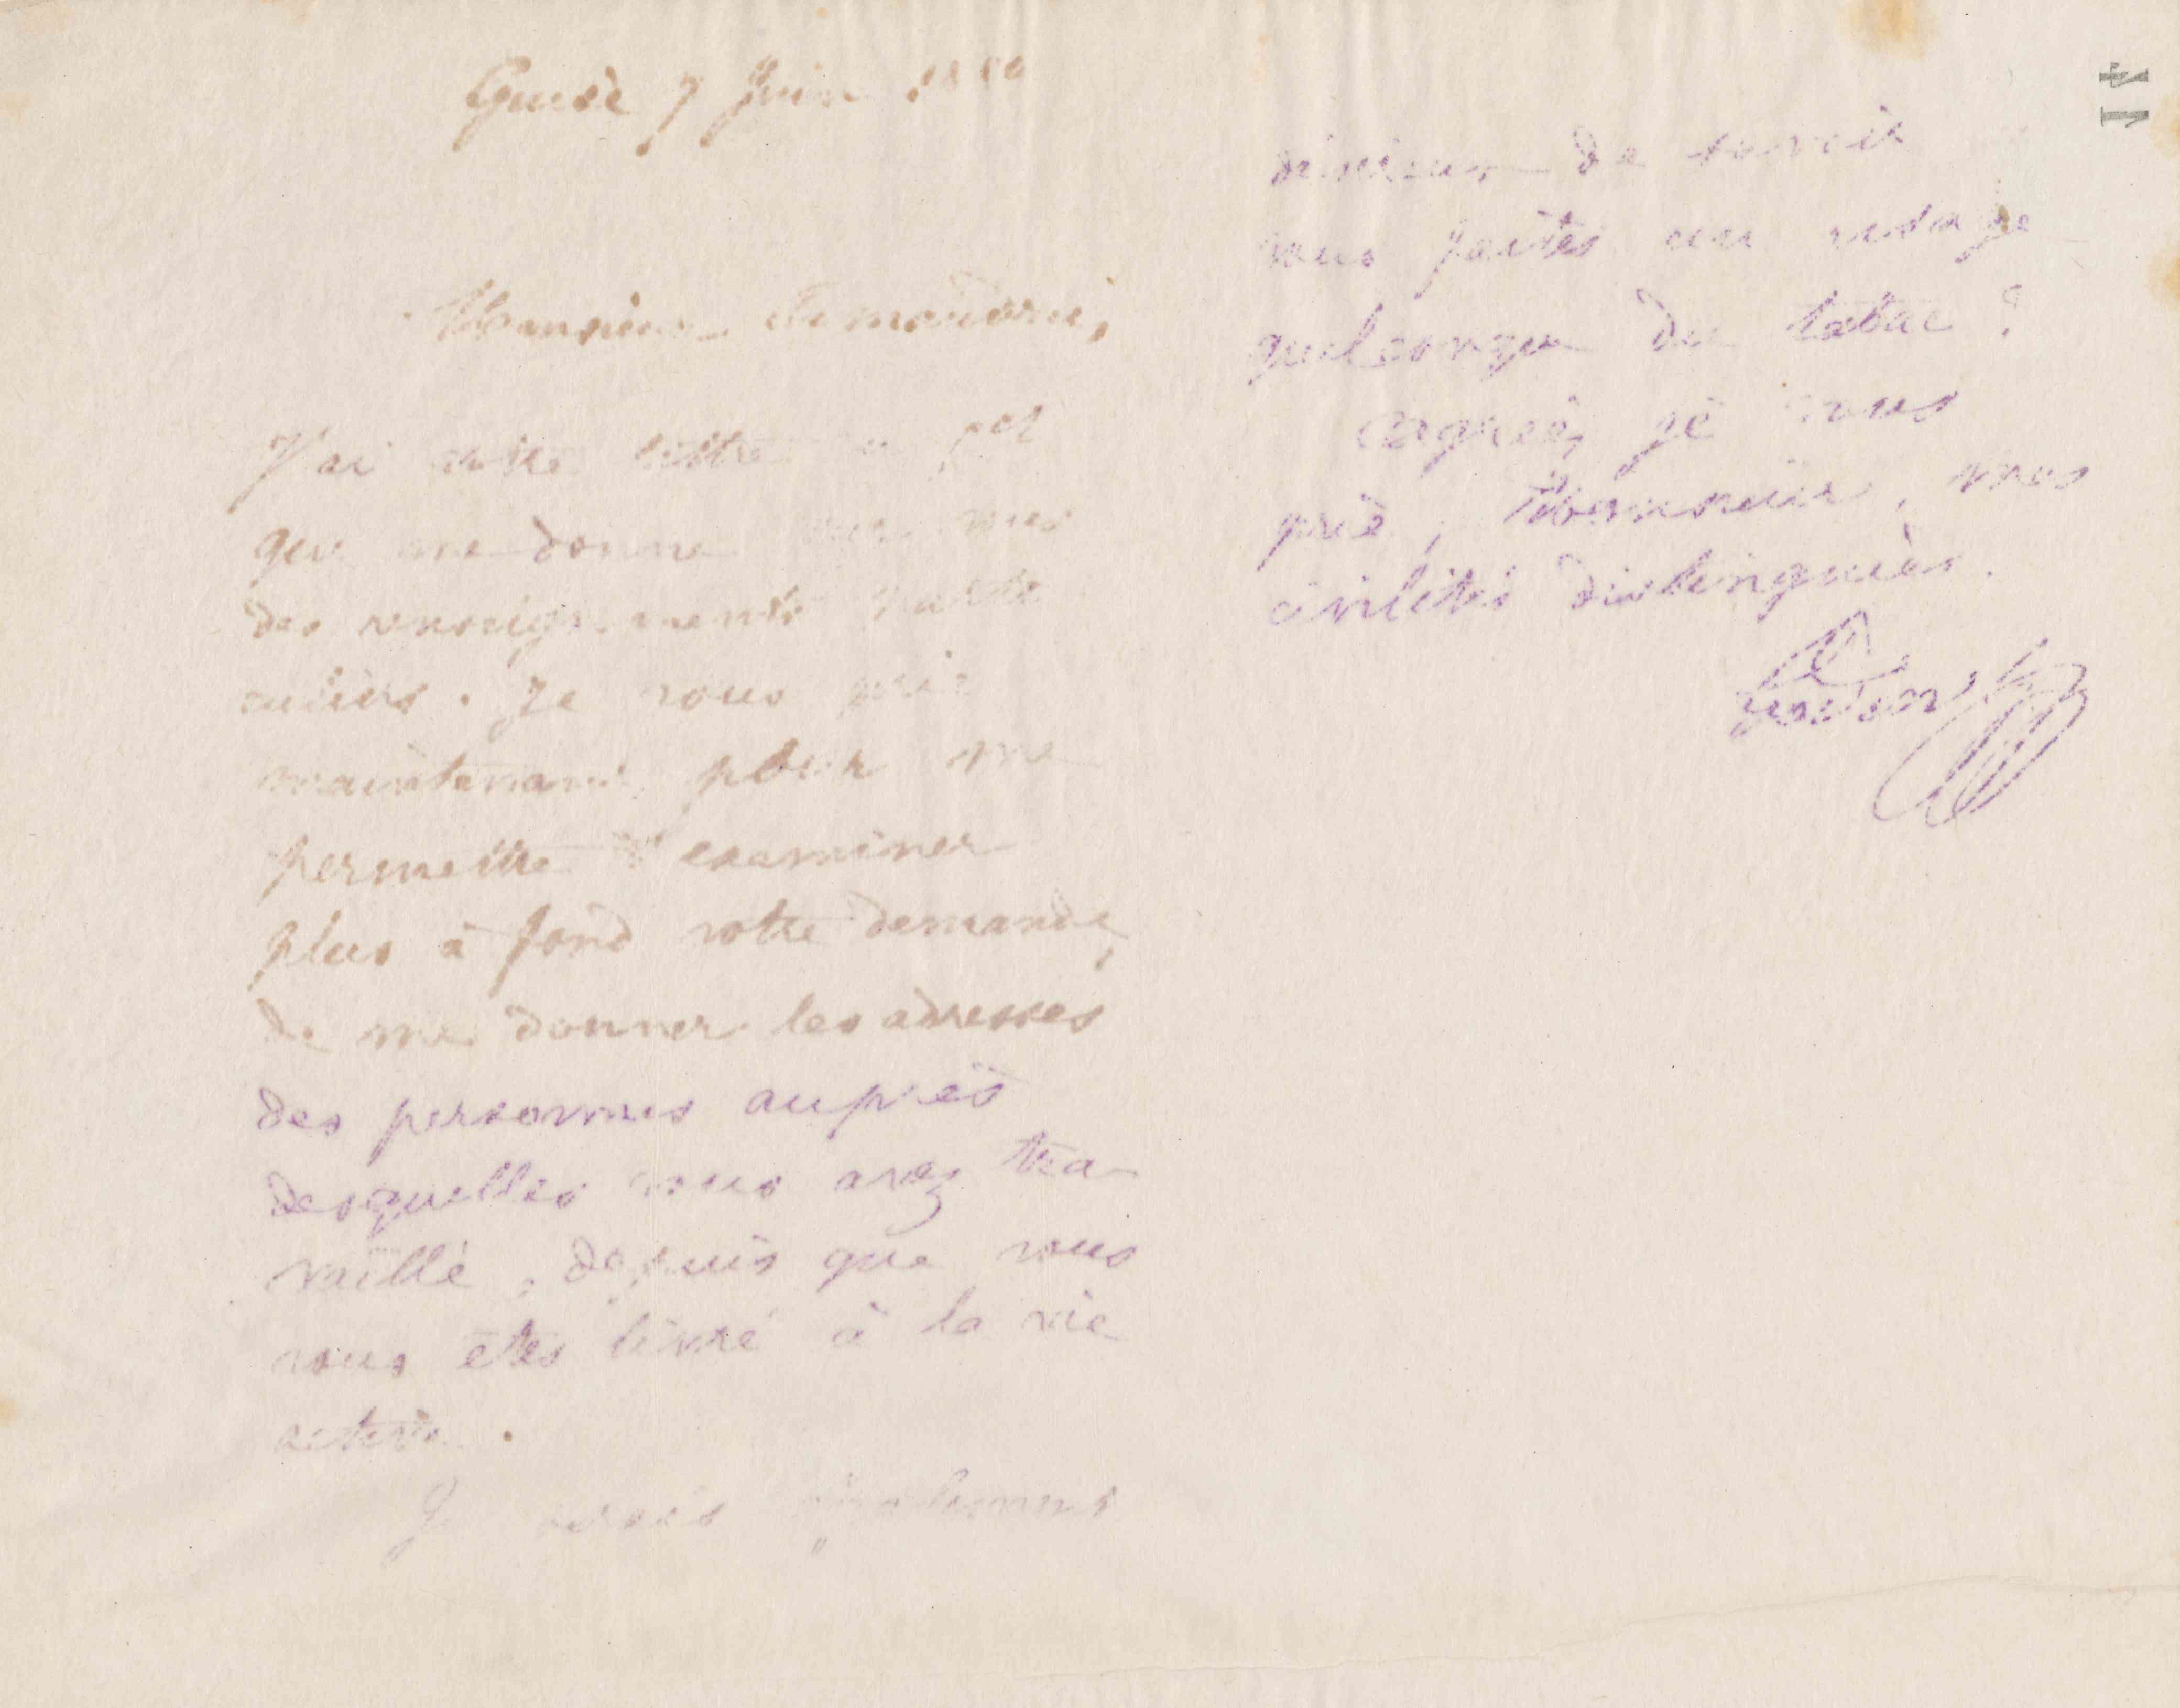 Guise 7 Juin
Monsieur
J'ai votre lettre
qui me donne
des renseignements parti
culiers. Je vous prie
maintenant, pour me
permettre d'examiner
plus à fond votre demande,
de me donner les adresses
des personnes auprès
desquelles vous avez tra-
vaillé, depuis que vous
vous êtes livré à la vie
active.
Je serais également
désireux de savoir
vous faites un usage
quelconque du tabac ?
Agréez, je vous
prie, Monsieur, mes
civilités distinguées.
Godin